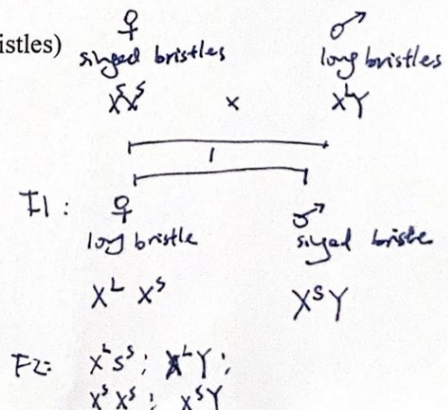 istles)
♀ ♂
singed bristles long bristles
XˢXˢ × XᴸY
F1: ♀ ♂
long bristle singed bristle
Xᴸ Xˢ XˢY
F2: XᴸSˢ; XᴸY;
XˢXˢ; XˢY